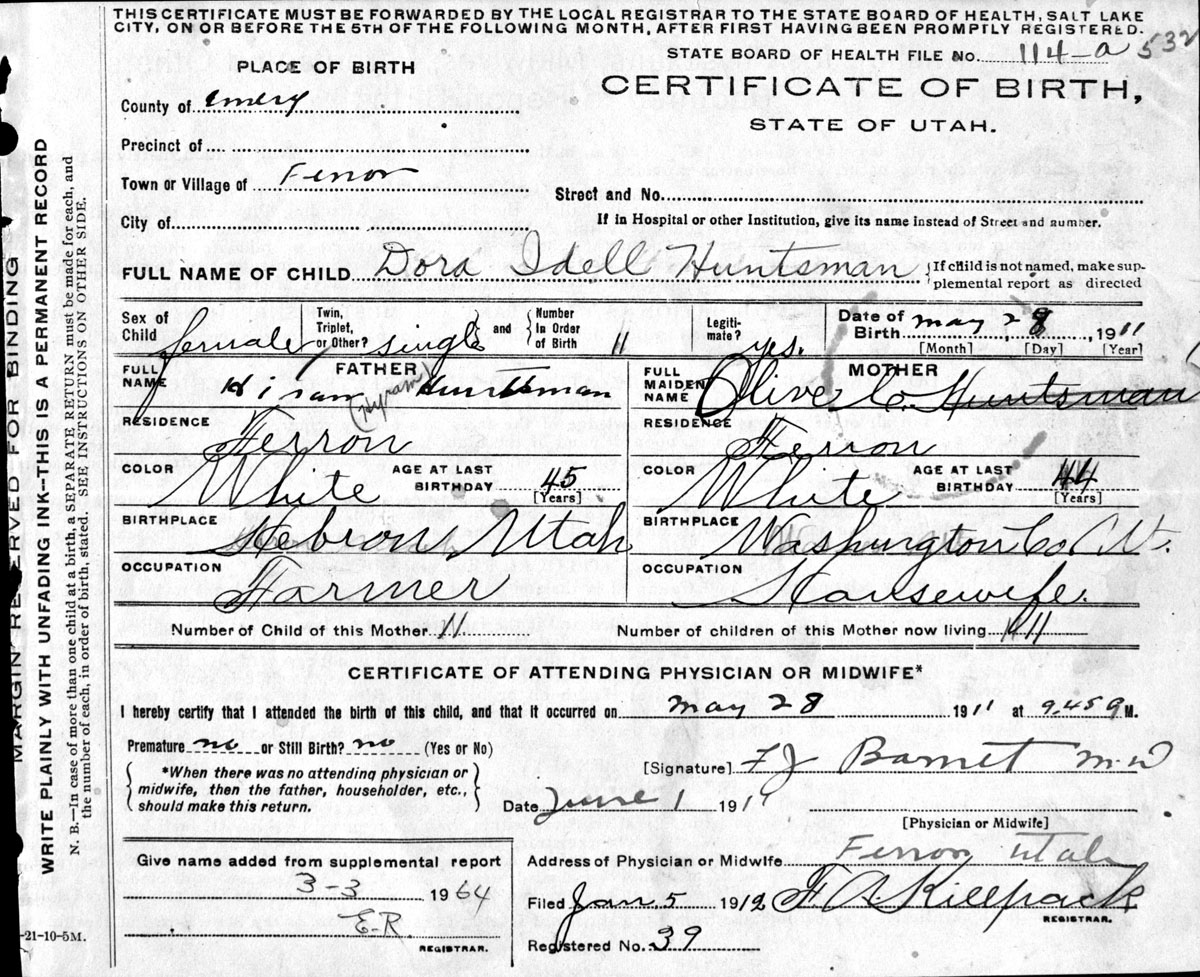 THIS CERTIFICATE MUST BE FORWARDED BY THE LOCAL REGISTRAR TO THE STATE BOARD OF HEALTH, SALT LAKE
CITY, ON OR BEFORE THE 5TH OF THE FOLLOWING MONTH, AFTER FIRST HAVING BEEN PROMPTLY REGISTERED.
STATE BOARD OF HEALTH FILE No. 114-a 532
PLACE OF BIRTH
CERTIFICATE OF BIRTH,
STATE OF UTAH.
County of emery
Precinct of
Town or Village of Ferron
Street and No.
City of
If in Hospital or other Institution, give its name instead of Street and number.
FULL NAME OF CHILD Dora Idell Huntsman
If child is not named, make sup-
plemental report as directed
Sex of Child female
Twin, Triplet, or Other? single
and Number In Order of Birth 11
Legiti-mate? yes.
Date of Birth may 28, 1911
[Month] [Day] [Year]
FATHER
FULL NAME Hiram (Hyram) Huntsman
RESIDENCE Ferron
COLOR White AGE AT LAST BIRTHDAY 45 [Years]
BIRTHPLACE Hebron, Utah
OCCUPATION Farmer
MOTHER
FULL MAIDEN NAME Olive C. Huntsman
RESIDENCE Ferron
COLOR White AGE AT LAST BIRTHDAY 44 [Years]
BIRTHPLACE Washington Co Ut.
OCCUPATION Housewife.
Number of Child of this Mother 11 Number of children of this Mother now living 11
CERTIFICATE OF ATTENDING PHYSICIAN OR MIDWIFE*
I hereby certify that I attended the birth of this child, and that it occurred on may 28 1911 at 9.45 M.
Premature no or Still Birth? no (Yes or No)
*When there was no attending physician or
midwife, then the father, householder, etc.,
should make this return.
[Signature] F J Barnet
Date June 1 1911
[Physician or Midwife]
Give name added from supplemental report
3-3 1964
E.R.
REGISTRAR.
Address of Physician or Midwife Ferron utah
Filed Jan 5 1912, F. A. Killpack
REGISTRAR.
Registered No. 39
-21-10-5M.
MARGIN RESERVED FOR BINDING
WRITE PLAINLY WITH UNFADING INK--THIS IS A PERMANENT RECORD
N. B.—In case of more than one child at a birth, a SEPARATE RETURN must be made for each, and
the number of each, in order of birth, stated. SEE INSTRUCTIONS ON OTHER SIDE.